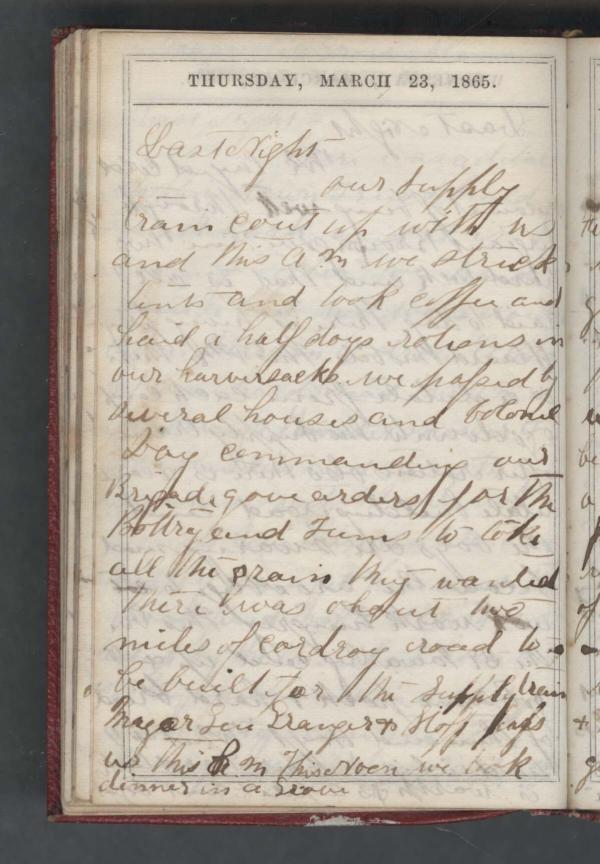 THURSDAY, MARCH 23, 1865.
Last Night
our supply
train come up with us
and this A m we struck
tents and took coffee and
haid a half days rotions in
our harversacks we passed by
several houses and Colonel
Day commanding our
Brigade gave orders for the
Battry and Teams to take
all the grain they wanted
there was about two
miles of cordroy road to
be built for the supply train
Magor Gen Granger & Staff
us this m This Noon we took
dinner in a Grove